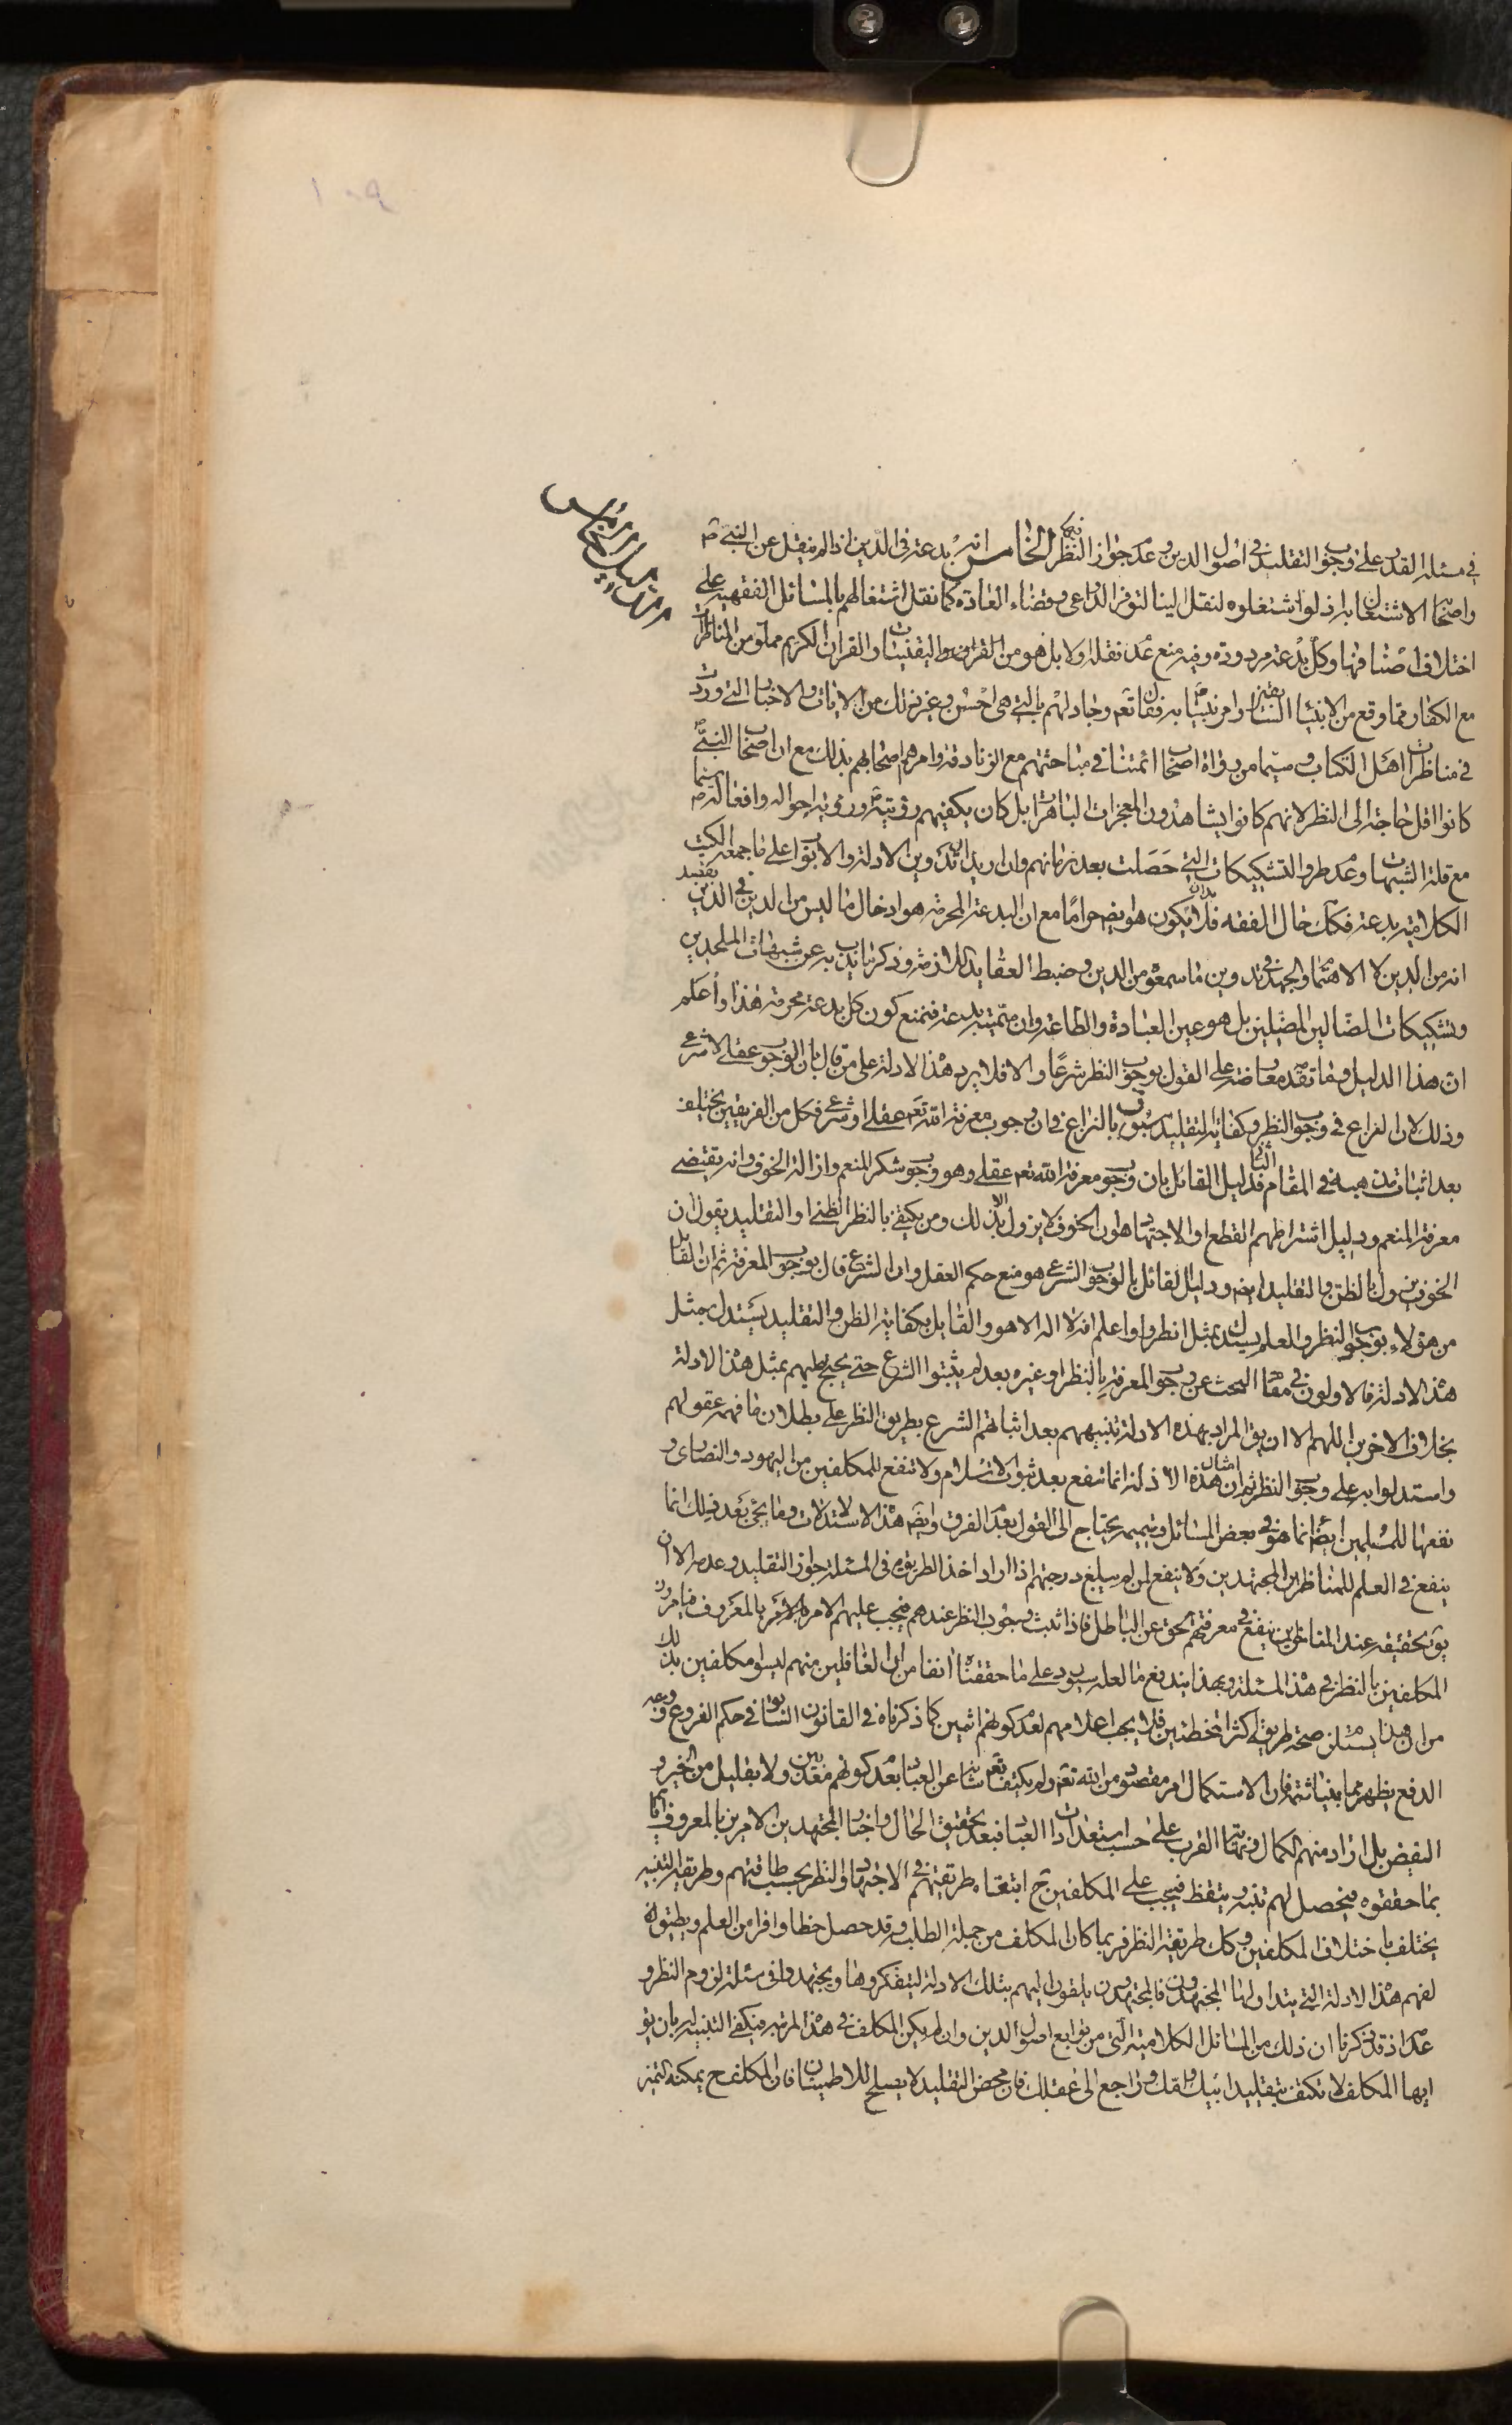 في مسئلة القدر على وجوب التقليد في اصول الدين وعدم جواز النظر فيها الخامس انه بدعة في الدين اذ لم ينقل عن النبي ص
واصحابه الاشتغال به اذ لو اشتغلوا به لنقل الينا لتوفر الدواعي وقضاء العادة كما نقل اشتغالهم بالمسائل الفقهية على
اختلاف اصنافها وكل بدعة مردودة وفيه منع عدم نقله اولا بل هو من الضروريات واليقينيات والقران الكريم مملو من المناظرات
مع الكفار ومما وقع من الانبياء السابقين وامر نبينا ص به فقال تعم وجادلهم بالتي هي احسن وغير ذلك من الايات والاخبار التي وردت
في مناظرات اهل الكتاب وسيما من رواة اصحاب ائمتنا في مباحثتهم مع الزنادقة وامرهم اصحابهم بذلك مع ان اصحاب النبي ص
كانوا اقل حاجة الى النظر لانهم كانوا يشاهدون المعجزات الباهرات بل كان يكفيهم رؤيته ص ورؤية احواله وافعاله ص سيما
مع قلة الشبهات وعدم طرو التشكيكات التي حصلت بعد زمانهم وان اريد ان تدوين الادلة والابواب على ما جمعه الكتب
الكلامية بدعة فكك حال الفقه فلا بد ان يكون هو ايضه حراما مع ان البدعة المحرمة هو ادخال ما ليس من الدين في الدين بقصد
انه من الدين لا الاهتمام والجهد في تدوين ما سمعوه من الدين وضبط العقايد اللازمة وذكر ما يذب به عن شبهات الملحدين
وتشكيكات الضالين المضلين بل هو عين العبادة والطاعة وان سميته بدعة فنمنع كون كل بدعة محرمة هذا واعلم
ان هذا الدليل وما تقدمه معارضة على القول بوجوب النظر شرعا والا فلا يرد هذه الادلة على من قال بان الوجوب عقلي لا شرعي
وذلك لان النزاع في وجوب النظر وكفاية التقليد مسبوق بالنزاع في ان وجوب معرفة الله تعم عقلي او شرعي فكل من الفريقين يختلف
بعد اثبات مذهبه في المقام الثاني فدليل القائل بان وجوب معرفة الله تعم عقلي وهو وجوب شكر المنعم وازالة الخوف وانه يقتضي
معرفة المنعم ودليل اشتراطهم القطع او الاجتهاد هو ان الخوف لا يزول الا بذلك ومن يكتفي بالنظر الظني او التقليد يقول ان
الخوف يزول بالظن والتقليد ايضه ودليل القائل بالوجوب الشرعي هو منع حكم العقل وان الشرع قال بوجوب المعرفة ثم ان القائل
من هؤلاء بوجوب النظر والعلم يستدل بمثل انظروا واعلم انه لا اله الا هو والقايل بكفاية الظن والتقليد يستدل بمثل
هذه الادلة فالاولون في مقام البحث عن وجوب المعرفة بالنظر او غيره بعد لم يثبتوا الشرع حتى يحتج عليهم بمثل هذه الادلة
بخلاف الاخرين اللهم الا ان يق المراد بهذه الادلة تنبيههم بعد اثباتهم الشرع بطريق النظر على بطلان ما فهمه عقولهم
واستدلوا به على وجوب النظر ثم ان امثال هذه الادلة انما تنفع بعد ثبوت الاسلام ولا تنفع للمكلفين من اليهود والنصارى و
نفعها للمسلمين ايضا انما هو في بعض المسائل وتتميمه يحتاج الى القول بعدم الفرق وايضه هذه الاستدلالات وما يجئ بعد ذلك انما
ينفع في العلم للمناظرين المجتهدين ولا ينفع لمن لم يبلغ درجتهم اذا اراد اخذ الطريقة في المسئلة جواز التقليد وعدمه الا ان
يق تحقيقه عند المناظرين ينفع في معرفتهم الحق عن الباطل فاذا ثبت وجوب النظر عندهم فيجب عليهم الامر بالمعروف فيأمرون
المكلفين بالنظر في هذه المسئلة وبهذا يندفع ما لعله يورد على ما حققناه انفا من ان الغافلين منهم ليسوا مكلفين بذلك
من ان هذا يستلزم صحة طريقة اكثر المخطئين فلا يجب اعلامهم لعدم كونهم اثمين كما ذكرناه في القانون السابق في حكم الفروع وجه
الدفع يظهر مما بينا ثمة فان الاستكمال امر مقصود من الله تعم ولم يكتف تعم شانه عن العباد بعدم كونهم معذبين ولا بقليل من الخير و
الفيض بل اراد منهم الكمال ونهاية القرب على حسب استعدادات العباد فبعد تحقيق الحال واخبار المجتهدين الامرين بالمعروف اياهم
بما حققوه فيحصل لهم تنبه وتيقظ فيجب على المكلفين ح ابتغاء طريقتهم في الاجتهاد والنظر بحسب طاقتهم وطريقة التنبيه
يختلف باختلاف المكلفين وكك طريقة النظر فربما كان المكلف من جملة الطلبة وقد حصل حظا وافرا من العلم ويطيق
لفهم هذه الادلة التي يتداولها المجتهدون فالمجتهدون يلقون اليهم بتلك الادلة ليتفكروها ويجتهدوا في مسئلة لزوم النظر و
عدمه اذ قد ذكرنا ان ذلك من المسائل الكلامية التي من توابع اصول الدين وان لم يكن المكلف في هذه المرتبة فيكفي التنبيه له بان يق
ايها المكلف لا تكتف بتقليد ابيك وامك وراجع الى عقلك فان محض التقليد لا يصلح للاطمينان فان المكلف ح يمكنه التميز